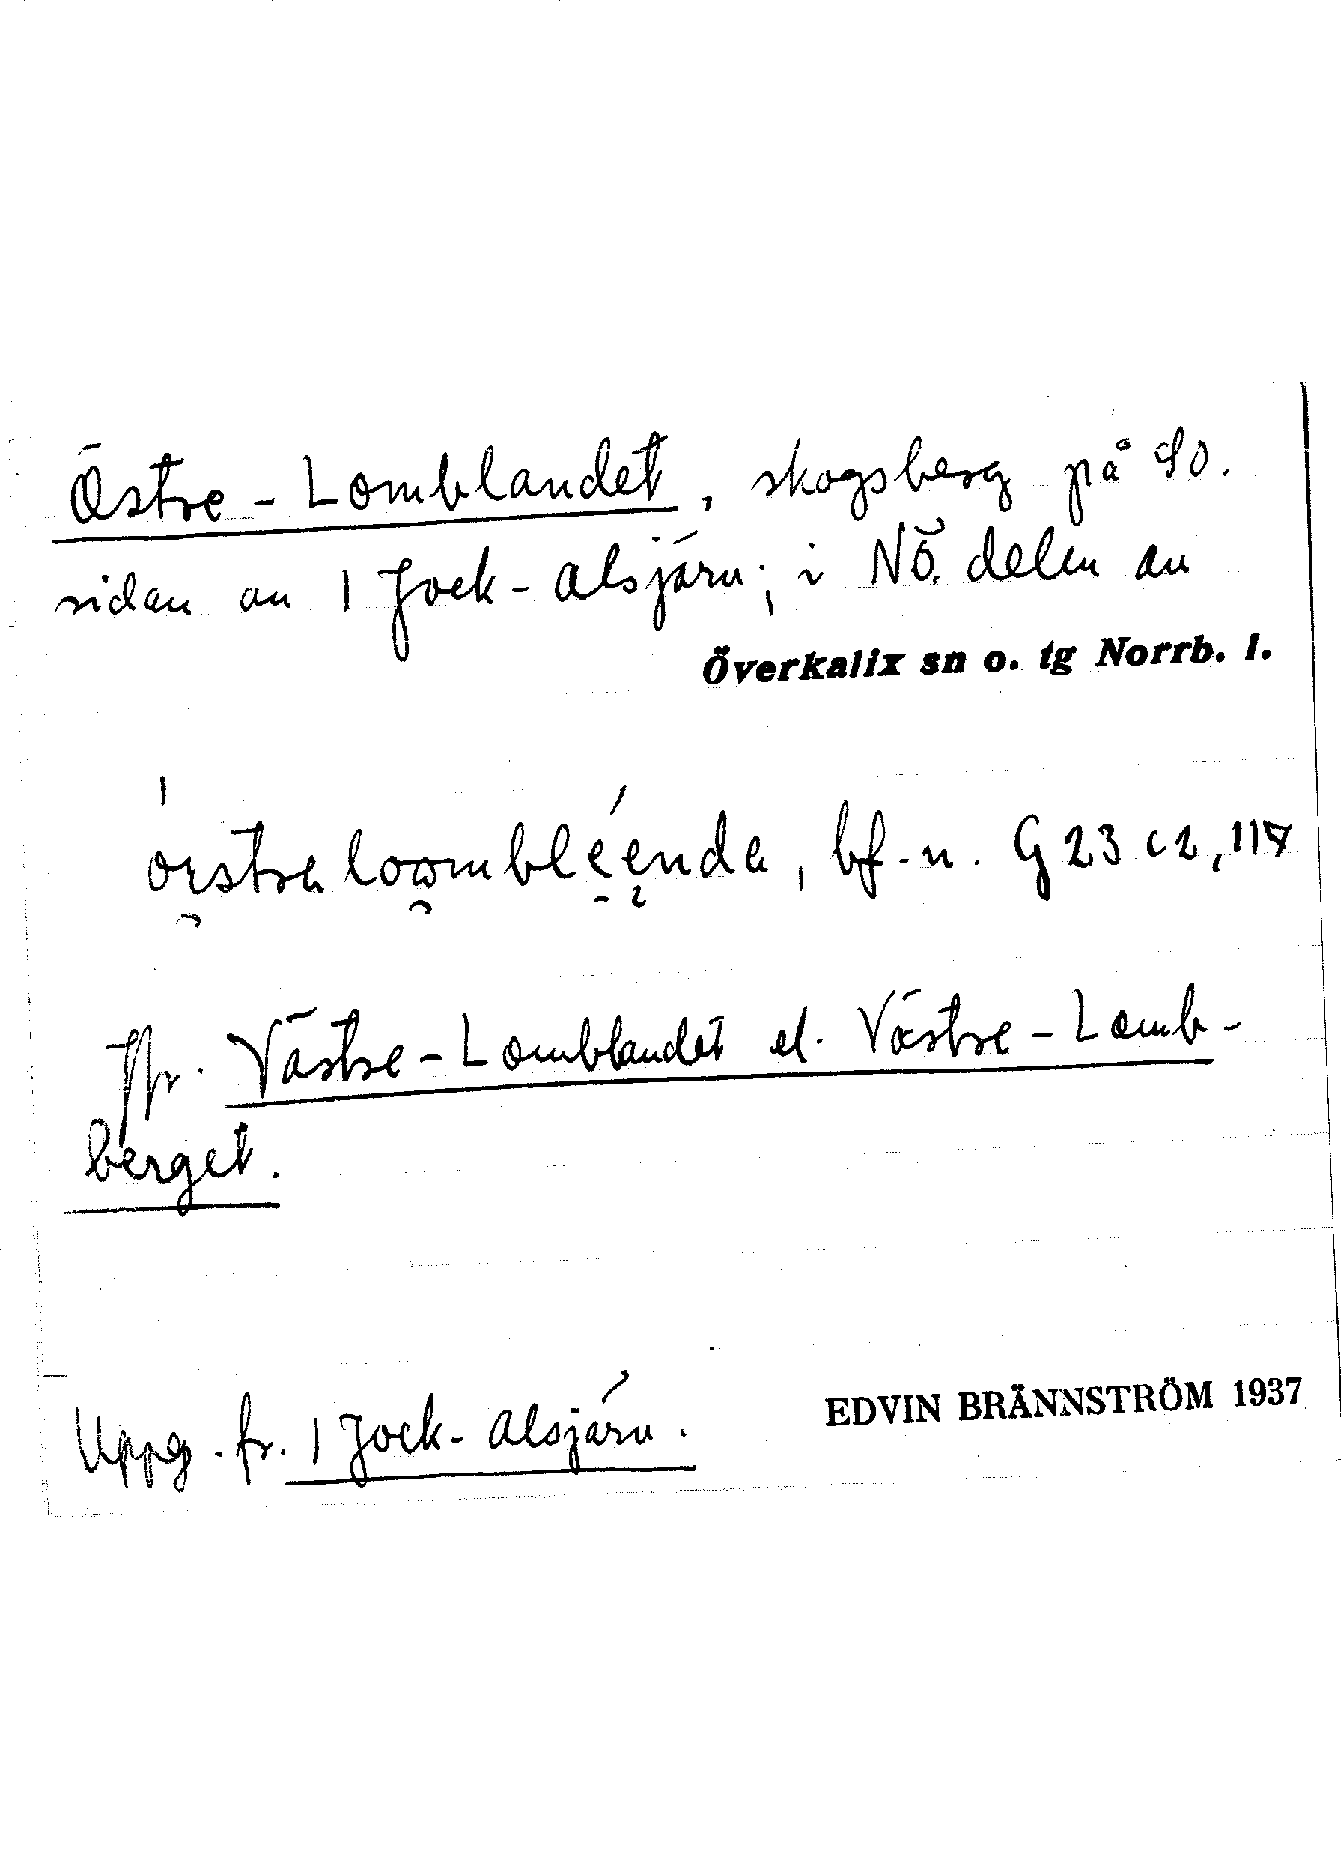 Östre-Lomblandet, skogsberg på SO.
sidan av 1 Jock-Alsjärv; i NÖ. delen av
Överkalix sn o. tg Norrb. l.
bf.-n. G 23 c2, 117
Jfr. Västre-Lomblandet el. Västre-Lomb-
berget.
Uppg. fr. 1 Jock-Alsjärv.
EDVIN BRÄNNSTRÖM 1937